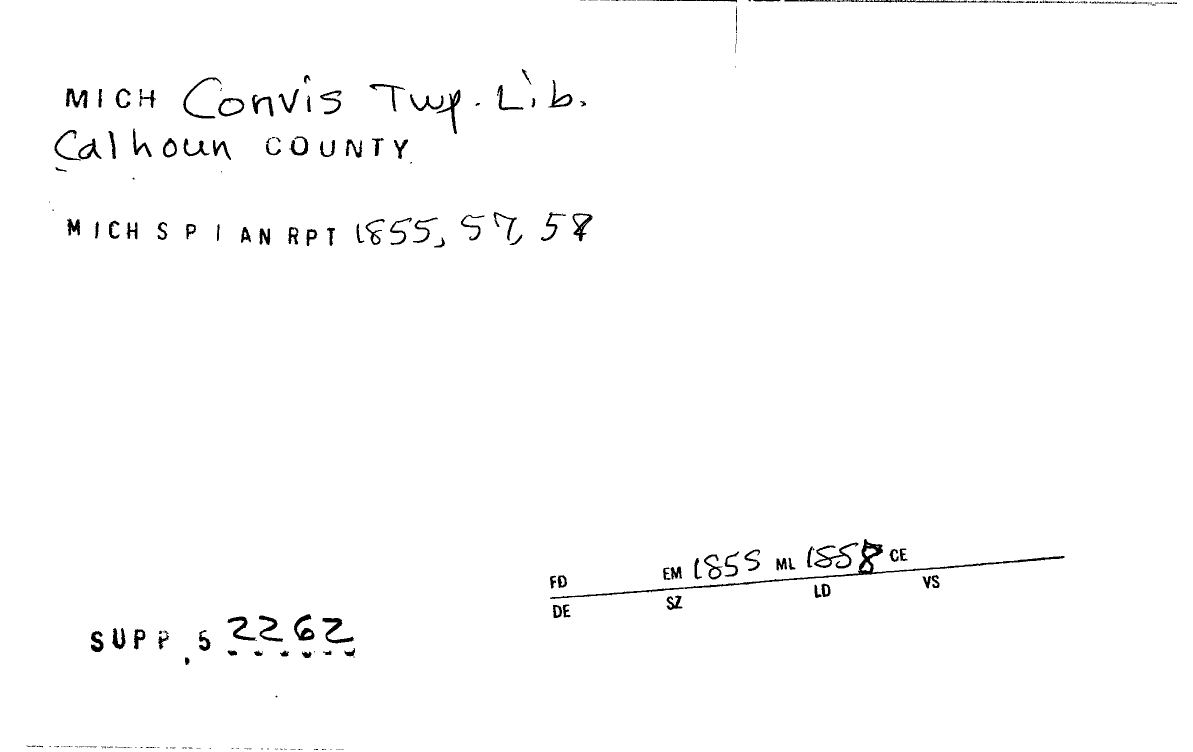 MICH Convis Twp. Lib.
Calhoun COUNTY
MICH S P I AN RPT 1855, 57, 58
FD EM 1855 ML 1858 CE
DE SZ LD VS
SUPP. 5 2262